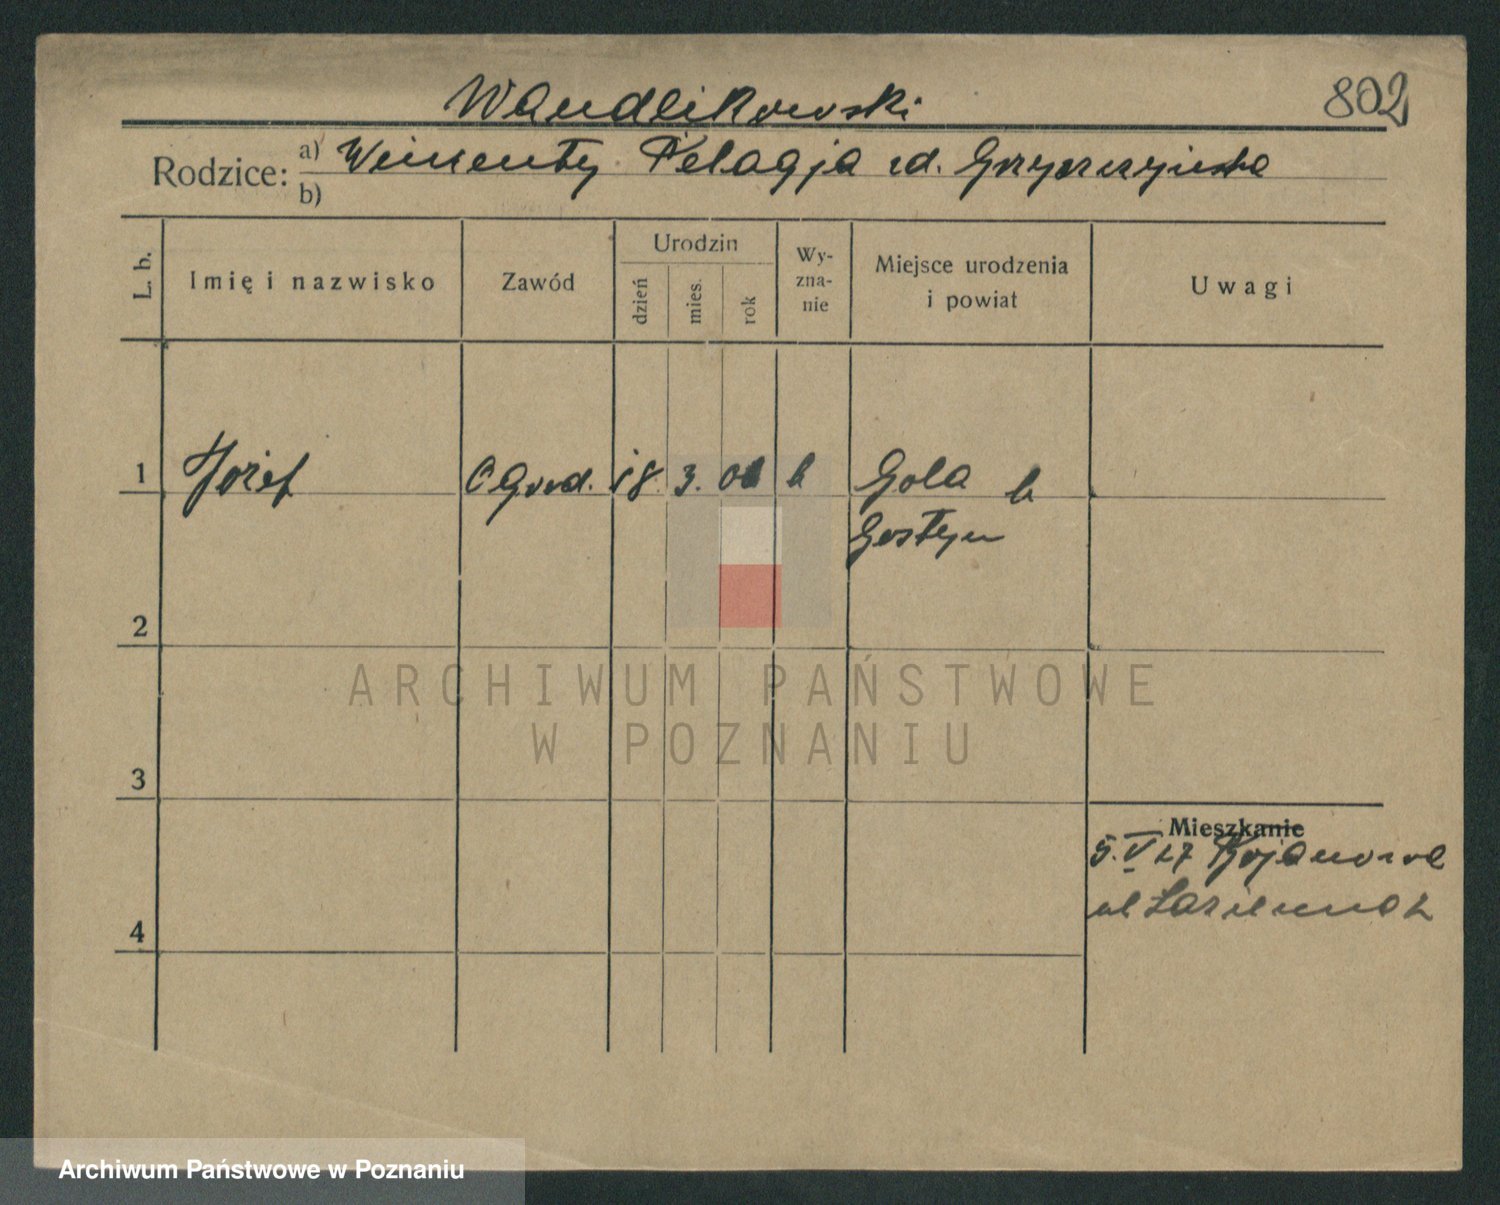 Wandlikowski 802
Rodzice: a) Wincenty Pelagja zd.
b)
L. b. Imię i nazwisko Zawód Urodzin dzień mies. rok Wy-zna-nie Miejsce urodzenia i powiat Uwagi
1 Józef Ogrod. 18. 3. k Gola k
Gostyn
2
ARCHIWUM PAŃSTWOWE
W POZNANIU
3
Mieszkanie
5. V 27 Bojanowo
ul Łazienna 2
4
Archiwum Państwowe w Poznaniu